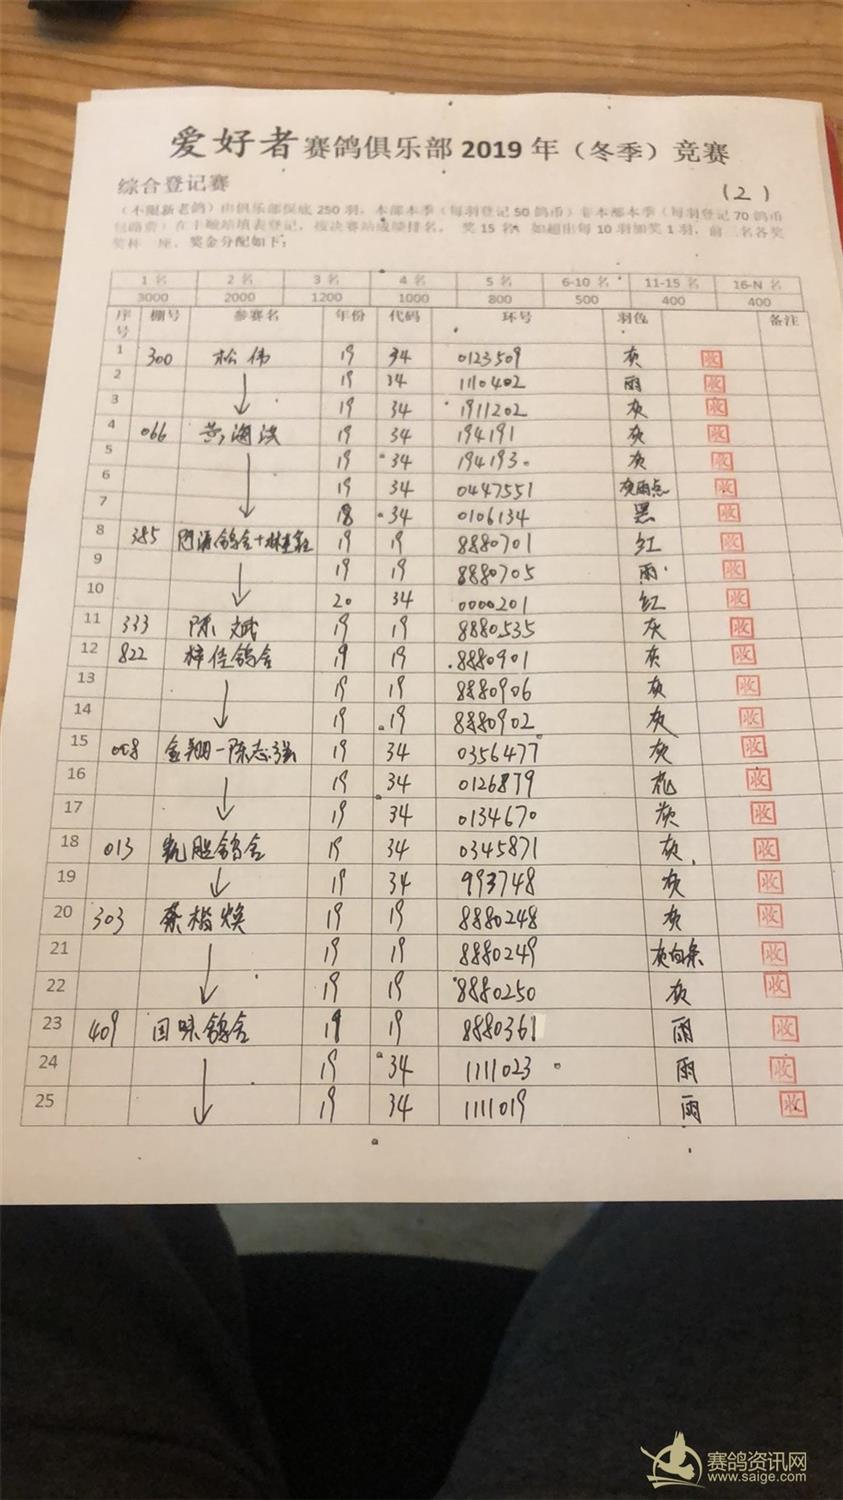 爱好者赛鸽俱乐部 2019 年（冬季）竞赛
综合登记赛 (2)
（不限新老鸽）由俱乐部保底 250 羽，本部本季（每羽登记 50 鸽币）非本部本季（每羽登记 70 鸽币
在 填表登记，按决赛站成绩排名， 奖 15 名，如超出每 10 羽加奖 1 羽，前三名各奖
奖杯一座，奖金分配如下：
1 名 2 名 3 名 4 名 5 名 6-10 名 11-15 名 16-N 名
3000 2000 1200 1000 800 500 400 400
序号 棚号 参赛名 年份 代码 环号 羽色 备注
1 300 松伟 19 34 0123509 灰 收
2 19 34 1110402 雨 收
3 19 34 1911202 灰 收
4 066 黄海洪 19 34 194191 灰 收
5 19 34 194193 灰 收
6 19 34 0447551 灰雨点 收
7 18 34 0106134 黑 收
8 385 鸽舍+林 19 19 8880701 红 收
9 19 19 8880705 雨 收
10 20 34 0000201 红 收
11 333 陈斌 19 19 8880535 灰 收
12 822 梓佳鸽舍 19 19 8880901 灰 收
13 19 19 8880906 灰 收
14 19 19 8880902 灰 收
15 008 金翔一陈志强 19 34 0356477 灰 收
16 19 34 0126879 花 收
17 19 34 0134670 灰 收
18 013 凯胜鸽舍 19 34 0345871 灰 收
19 19 34 993748 灰 收
20 303 蔡楷焕 19 19 8880248 灰 收
21 19 19 8880249 灰白条 收
22 19 19 8880250 灰 收
23 409 回味鸽舍 19 19 8880361 雨 收
24 19 34 1111023 雨 收
25 19 34 1111019 雨 收
赛鸽资讯网
www.saige.com